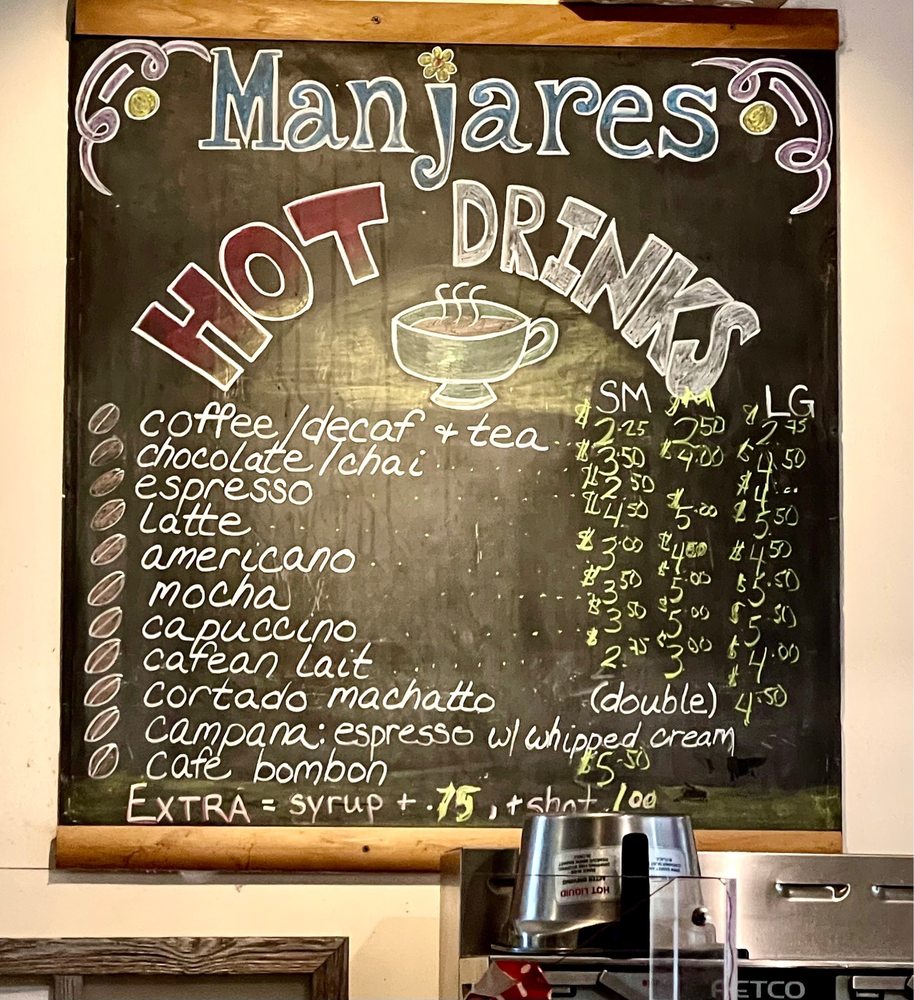 Manjares
HOT DRINKS
SM M LG
coffee/decaf + tea $2.25 2.50 $2.75
chocolate/chai $3.50 $4.00 $4.50
espresso $2.50 $4.00
latte $4.50 $5.00 $5.50
americano $3.00 $4.00 $4.50
mocha $3.50 $5.00 $5.50
capuccino $3.50 $5.00 $5.50
cafean lait $2.75 $3.00 $4.00
cortado machatto (double) $4.50
campana: espresso w/ whipped cream
café bombon $5.50
EXTRA = syrup + .75, + shot 1.00
HOT LIQUID
FETCO